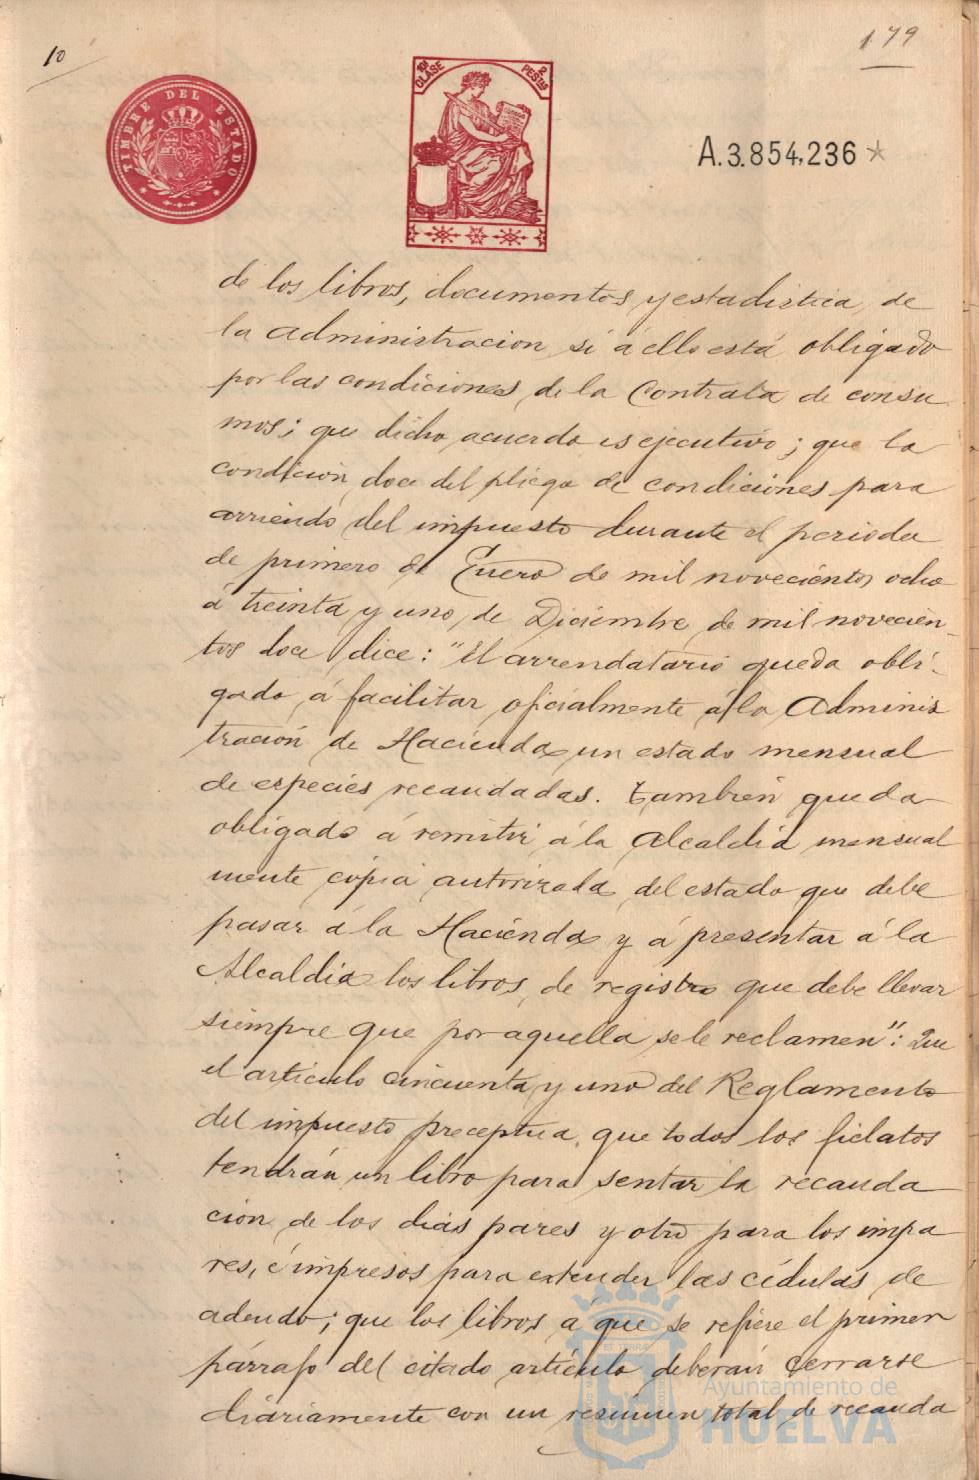 10
179
TIMBRE DEL ESTADO
10ª CLASE
2 PESTAS
A.3.854,236
de los libros, documentos y estadistica, de
la administracion si á ello está obligado
por las condiciones, de la Contrata de consu
mos; que dicho acuerdo es ejecutivo; que la
condición doce del pliego de condiciones para
arriendo del impuesto durante el periodo
de primero de Enero de mil novecientos ocho
á treinta y uno, de Diciembre, de mil novecien-
tos doce dice: "El arrendatario queda obli-
gado, á facilitar oficialmente á la Adminis
tración de Hacienda un estado mensual
de especies recaudadas. También queda
obligado á remitir á la Alcaldia mensual
mente cópia autorizada del estado que debe
pasar á la Hacienda y á presentar á la
Alcaldia los libros, de registro que debe llevar
siempre que por aquella se le reclamen": Que
el articulo cincuenta y uno del Reglamento
del impuesto preceptua, que todos los fielatos
tendrán un libro para sentar la recauda
cion de los dias pares y otro para los impa
res, é impresos para extender las cédulas de
adeudo; que los libros á que se refiere el primer
párrafo del citado articulo deberán cerrarse
diáriamente con un resumen total de recauda
Ayuntamiento de
HUELVA